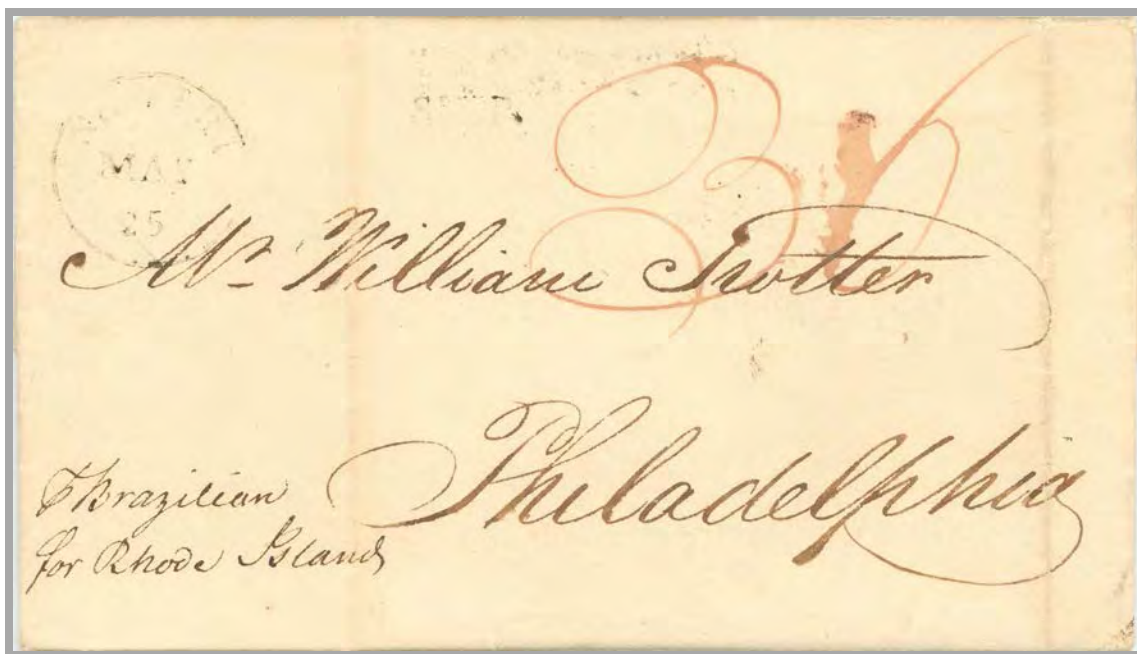 MAY
25
Mr William Trotter
Philadelphia
⅌ Brazilian
for Rhode Island